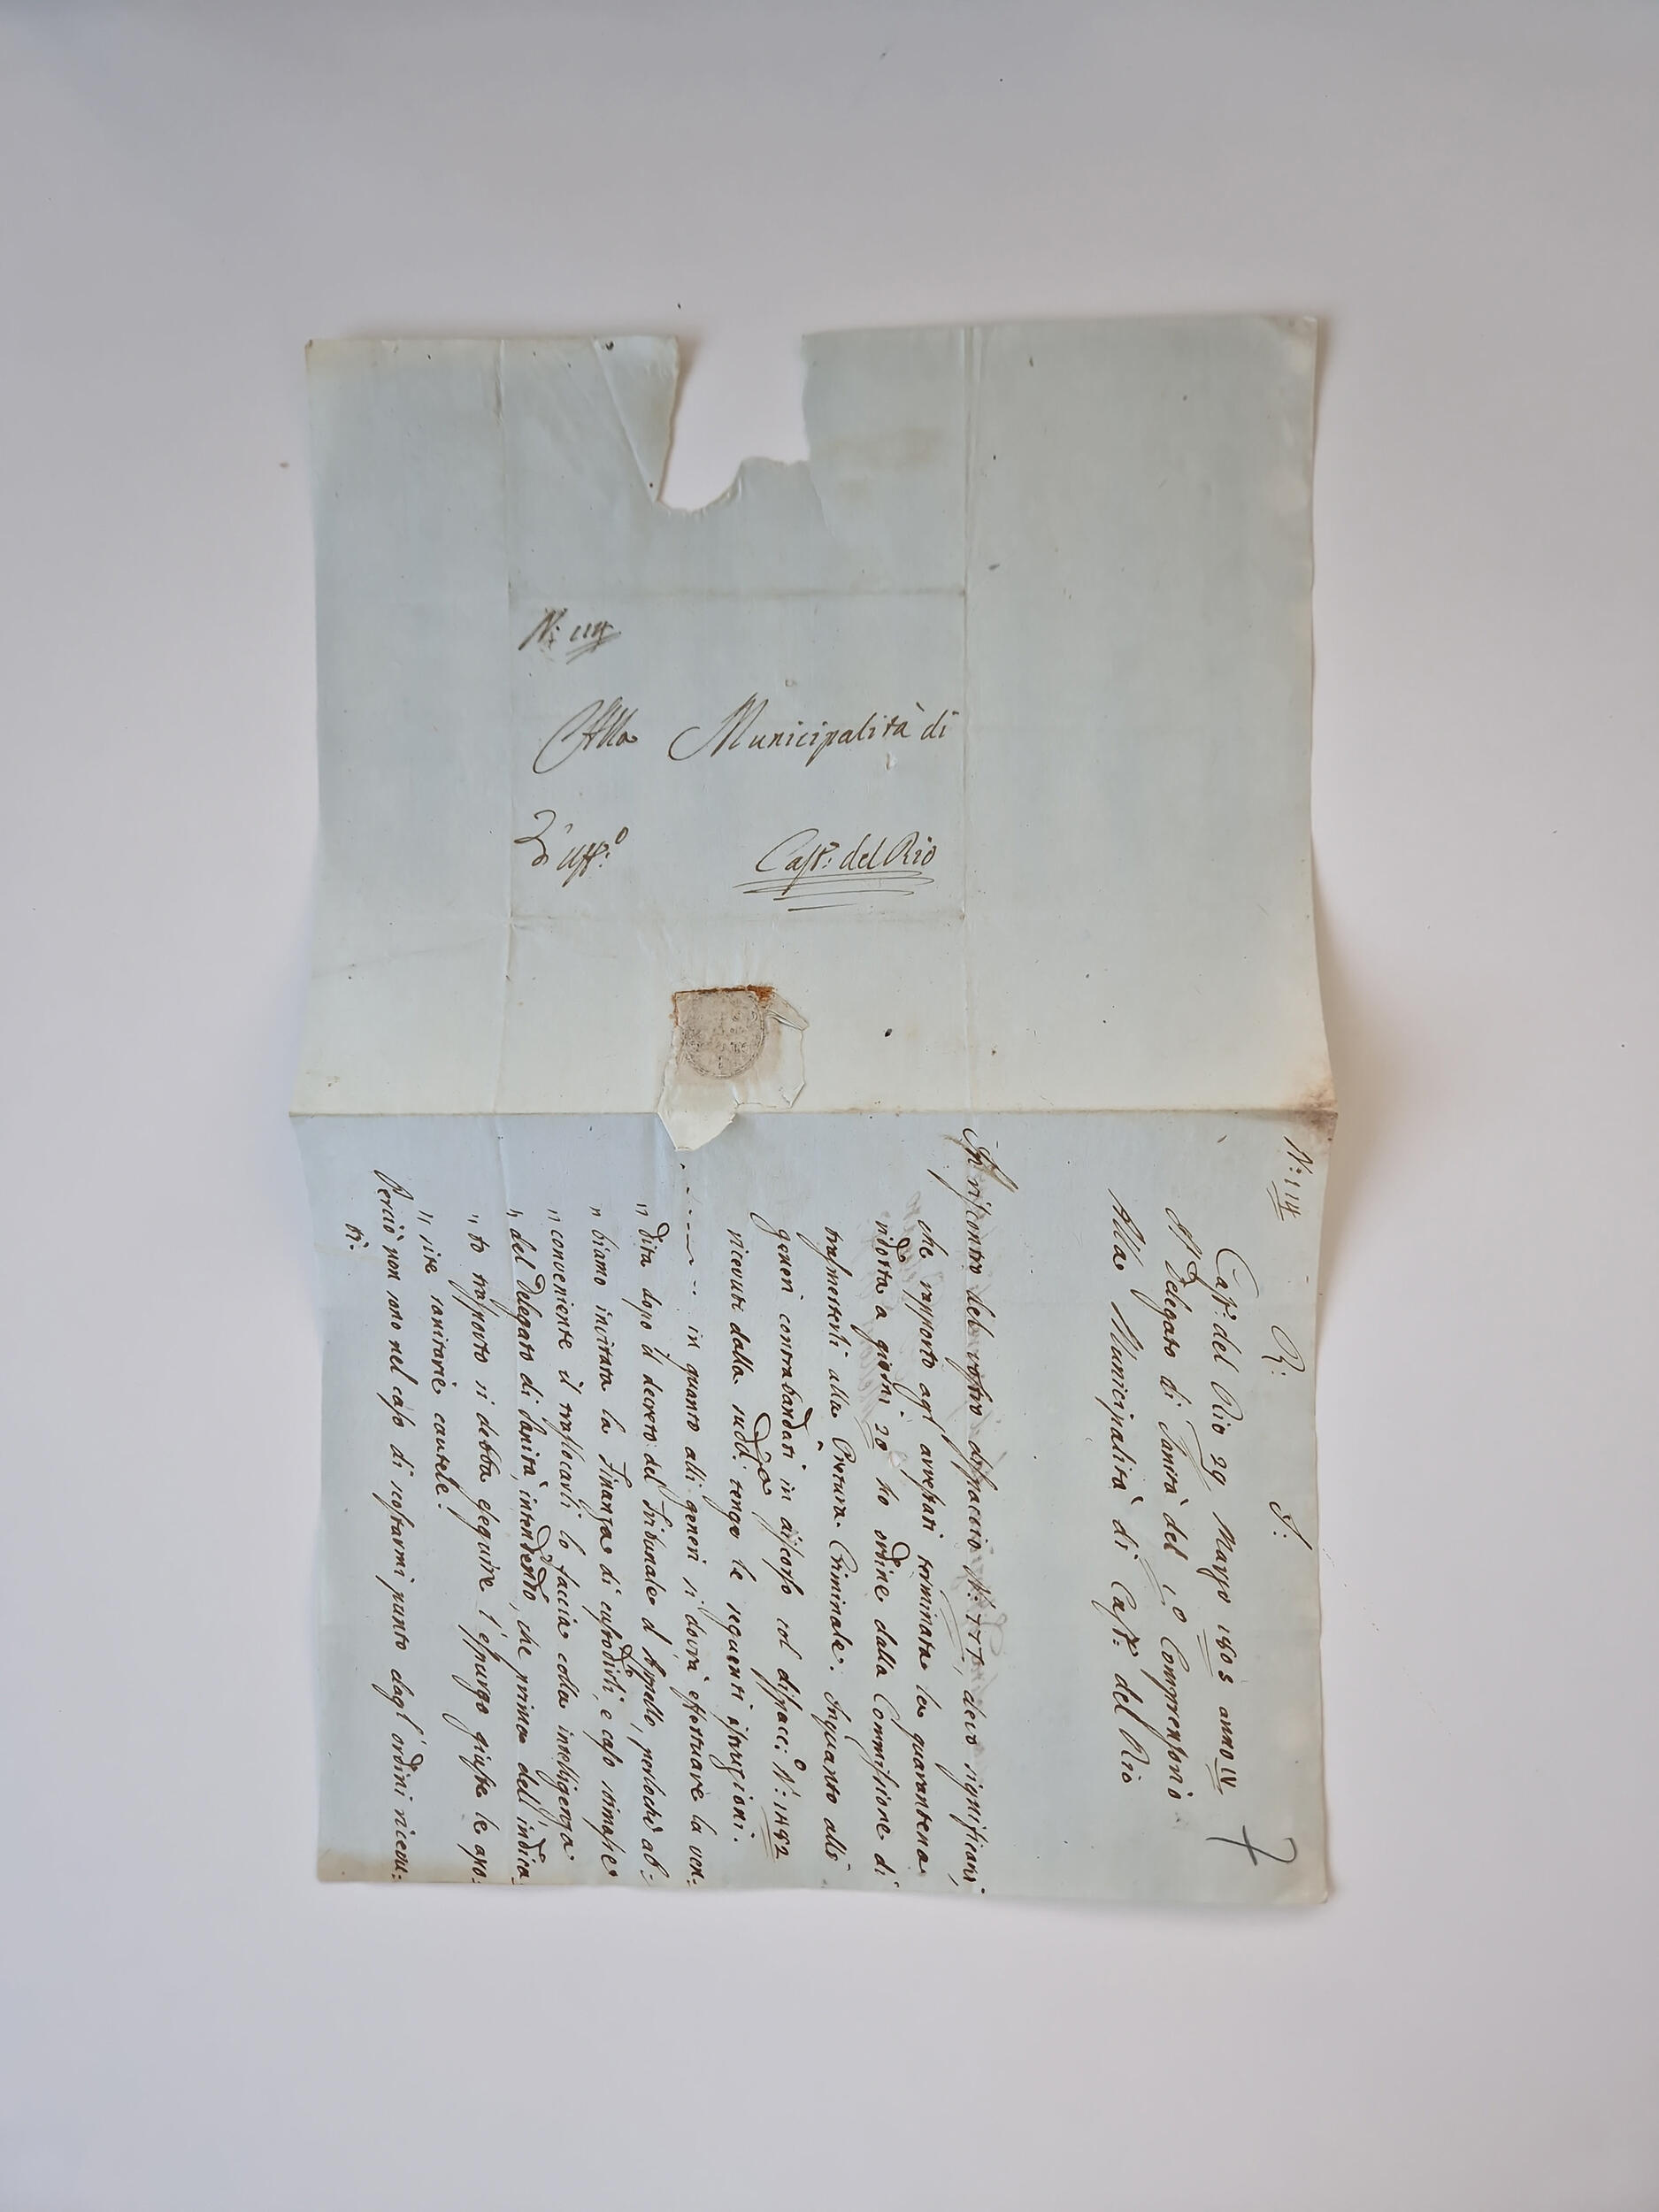 N: 114
Alla Municipalità di
D'Uff:º
Cast: del Rio
N: 114
R: I:
Cast: del Rio 29 Marzo 1805 anno IV
Il Delegato di Sanità del 1º Comprensorio
Alla Municipalità di Cast: del Rio
7
In riscontro del vostro dispaccio N: 177, devo significarvi,
che rapporto agl' arrestati terminata la quarantena
ridotta a giorni 20 ho ordine dalla Commissione di
trasmetterli alla Pretura Criminale. Inquanto alli
generi contrabandati in discorso col dispacc: N: 1482
ricevuti dalla sudd: tengo le seguenti istruzioni.
in quanto alli generi si dovrà effettuare la ven:
„ dita dopo il decreto del Tribunale d'Appello, perlochè ab:
„ biamo invitata la Finanza di custodirli, e caso rimasse
„ conveniente il traslocarli lo faccia colla intelligenza
„ del Delegato di Sanità, intendendo, che prima dell' indica:
„ to trasporto si debba eseguire l'espurgo giusta le apo:
„ site sanitarie cautele.
Perciò non sono nel caso di scostarmi punto dagl' ordini ricevu:
ti.